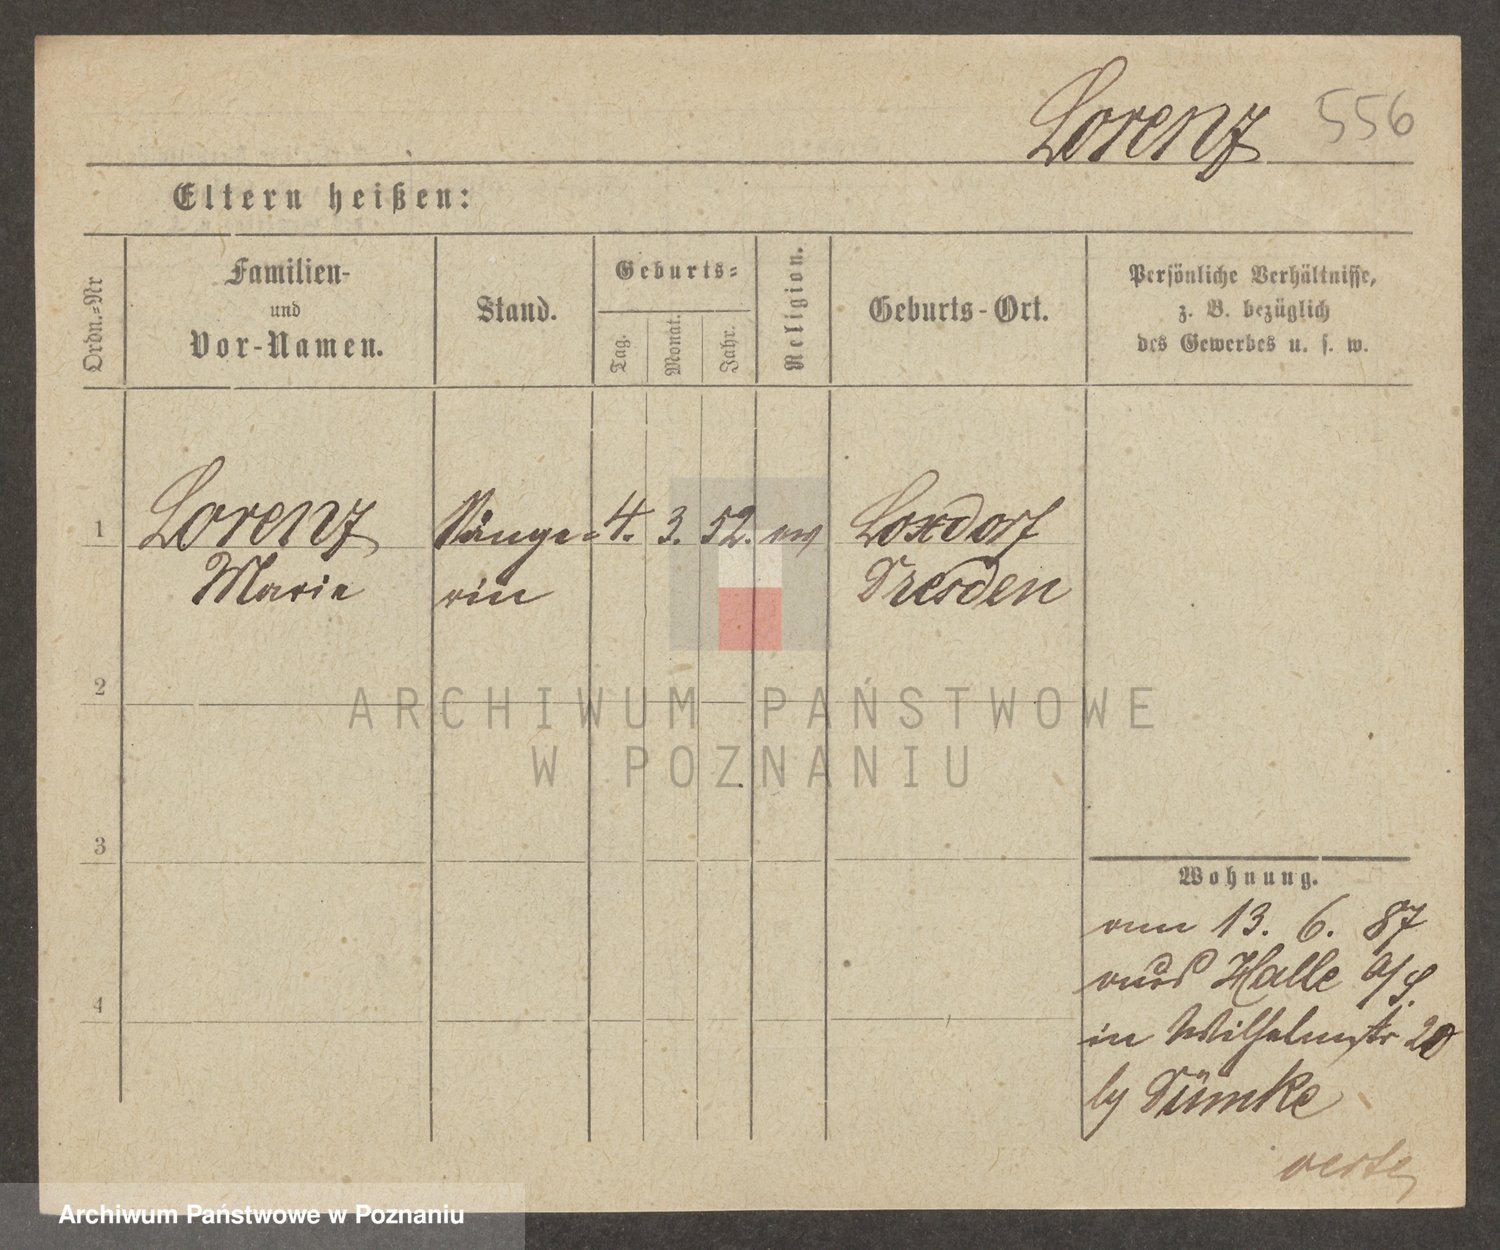 Lorenz 556
Eltern heißen:
Ordn.-Nr
Familien-
und
Vor-Namen.
Stand.
Geburts-
Tag.
Monat.
Jahr.
Religion.
Geburts-Ort.
Persönliche Verhältnisse,
z. B. bezüglich
des Gewerbes u. s. w.
1 Lorenz Sänge- 4. 3. 52. ev Loxdorf
Marie rin Dresden
2
ARCHIWUM PAŃSTWOWE
W POZNANIU
3
Wohnung.
am 13. 6. 87
aus Halle a/S.
4
in Wilhelmstr 20
by Dümke
Archiwum Państwowe w Poznaniu